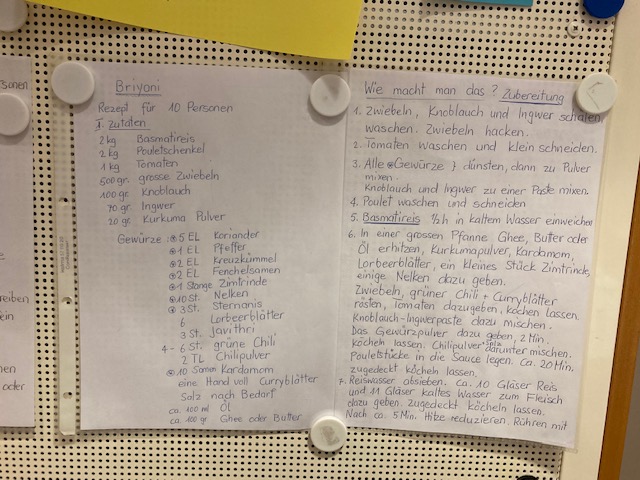 Briyoni
Rezept für 10 Personen
I. Zutaten
2 kg Basmatireis
2 kg Pouletschenkel
1 kg Tomaten
500 gr. grosse Zwiebeln
100 gr. Knoblauch
70 gr. Ingwer
20 gr. Kurkuma Pulver
Gewürze: 5 EL Koriander
1 EL Pfeffer
2 EL Kreuzkümmel
2 EL Fenchelsamen
1 Stange Zimtrinde
10 St. Nelken
3 St. Sternanis
6 Lorbeerblätter
3 St. Javithri
4 - 6 St. grüne Chili
2 TL Chilipulver
10 Kardamom
eine Hand voll Curryblätter
Salz nach Bedarf
ca. 100 ml Öl
ca. 100 gr Ghee oder Butter
Wie macht man das? Zubereitung
1. Zwiebeln, Knoblauch und Ingwer schälen,
waschen. Zwiebeln hacken.
2. Tomaten waschen und klein schneiden.
3. Alle Gewürze } dünsten, dann zu Pulver
mixen.
Knoblauch und Ingwer zu einer Paste mixen.
4. Poulet waschen und schneiden
5. Basmatireis 1/2 h in kaltem Wasser einweichen
6. In einer grossen Pfanne Ghee, Butter oder
Öl erhitzen, Kurkumapulver, Kardamom,
Lorbeerblätter, ein kleines Stück Zimtrinde,
einige Nelken dazu geben.
Zwiebeln, grüner Chili + Curryblätter
rösten, Tomaten dazugeben, kochen lassen.
Knoblauch-Ingwerpaste dazu mischen.
Das Gewürzpulver dazu geben, 2 Min.
köcheln lassen. Chilipulver + Salz darunter mischen.
Pouletstücke in die Sauce legen. Ca. 20 Min.
zugedeckt köcheln lassen.
7. Reiswasser absieben. ca. 10 Gläser Reis
und 11 Gläser kaltes Wasser zum Fleisch
dazu geben. Zugedeckt köcheln lassen.
Nach ca. 5 Min. Hitze reduzieren. Rühren mit
sonen
reiben
ein
nen
oder